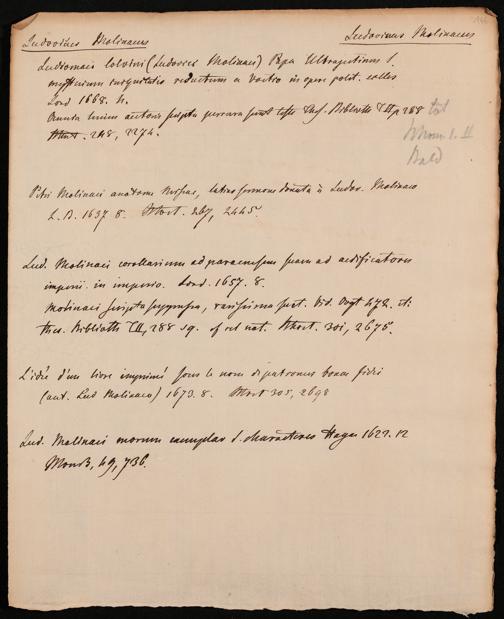 Ludovicus Molinaeus Ludovicus Molinaeus
Ludiomaei Colvini (Ludovici Molinaei) Papa Ultrajectinus s.
mysterium iniquitatis reductum a Voetio in opere polit. eccles
Lond 1668. 4.
Omnia huius autoris scripta perrara sunt teste Thes. Biblioth T II p 288
248, 2274.
Petri Molinaei anatome Missae, latino sermone donata à Ludov. Molinaeo
L. B. 1637. 8. 267, 2445.
Lud. Molinaei corollarium ad paraenesim suam ad aedificatores
imperii in imperio. Lond. 1657. 8.
Molinaei scripta rarissima sunt. Vid. Vogt 472. it.
thes. Biblioth T II, 288 sq. 301, 2675.
L'idée d'un livre imprimé sous le nom de patronus bonae fidei
(aut. Lud Molinaeo) 1673. 8. 305, 2698
Lud. Molinaei morum exemplar s. characteres Hagae 1629. 12
49, 736.